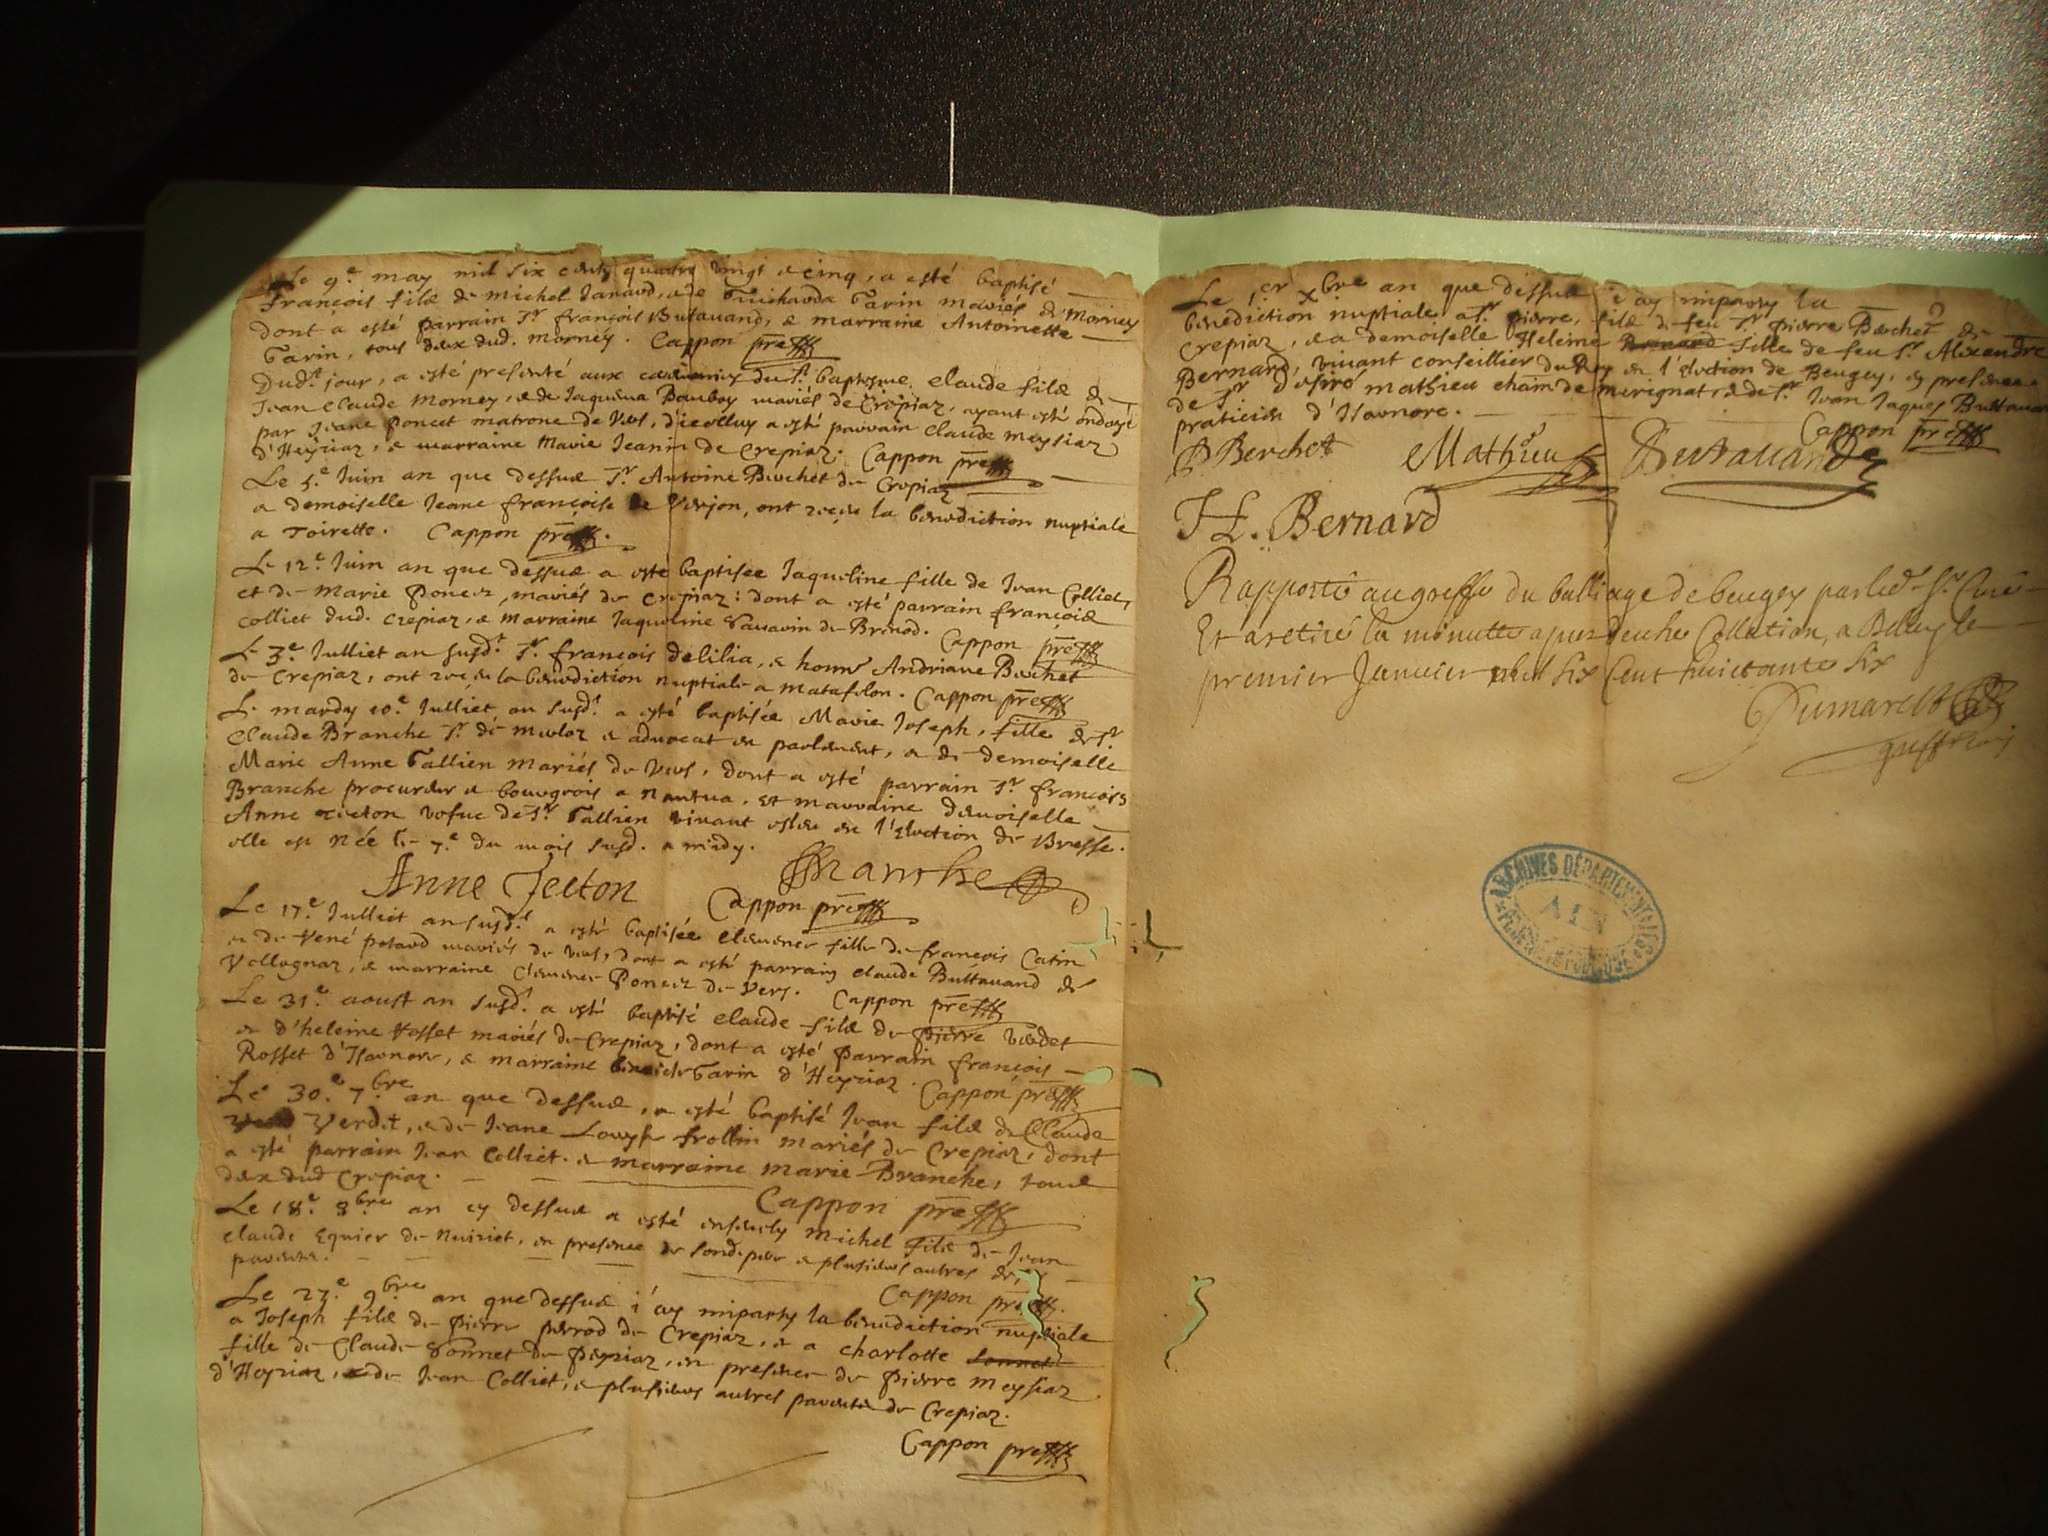 Le 9.e may mil six cents quatre vingt e cinq, a esté baptisé
françois filz de michel Janaud, e de Guichauda Tarin mariés de Morney
dont a esté parrain Sr. françois Butavand, e marraine Antoinette
Tarin, tous deux dud. morney. Cappon pre
Dud.t jour, a esté presenté aux du St. baptesme Claude filz de
Jean Claude Morney, e de Jaquema mariés de Crepiaz, ayant esté ondoyé
par Jeane Poncet matrone de Vers, d'icelluy a esté parrain Claude meysiaz
d'Heyriaz, e marraine Marie Jeanin de Crepiaz. Cappon pre
Le 5.e Juin an que dessus Sr. Antoine Berchet de Crepiaz
a demoiselle Jeane françoise de Verjon, ont receu la benediction nuptiale
a Toirette. Cappon pre
Le 12.e Juin an que dessus a esté baptisée Jaqueline fille de Jean Colliet,
et de Marie Poncet, mariés de Crepiaz: dont a esté parrain françois
Colliet dud. Crepiaz, e marraine Jaqueline Savarin de Brenod. Cappon pre
Le 3.e Julliet an susd.t Sr. françois delilia, e honne Andriane Berchet
de Crepiaz, ont receu la benediction nuptiale a matafelon. Cappon pre
Le mardy 10.e Julliet an susd.t a esté baptisée Marie Joseph, fille de Sr.
Claude Branche Sr. de e advocat en parlement, e de demoiselle
Marie Anne Tallien mariés de Vers, dont a esté parrain Sr. françois
Branche procureur e bourgeois a nantua, et marraine demoiselle
Anne Tecton vefue de Sr. Tallien vivant esleu en l'Election de Bresse.
elle est née le 7.e du mois susd. a midy.
Anne Tecton Branche
Cappon pre
Le 17.e Julliet an susd.t a esté baptisée Clemence fille de françois Catin
e de René potard mariés de Vers, dont a esté parrain Claude Buttavand de
Vollognaz, e marraine Clemence Poncet de Vers. Cappon pre
Le 31.e aoust an susd.t a esté baptisé Claude filz de Pierre Verdet
e d'heleine Rosset mariés de Crepiaz, dont a esté parrain françois
Rosset d'Isernore, e marraine Tarin d'Heyriaz. Cappon pre
Le 30.e 7.bre an que dessus, a esté baptisé Jean filz de Claude
Verdet, e de Jeane Louyse frollin mariés de Crepiaz, dont
a esté parrain Jean Colliet. e marraine marie Branche, tous
deux dud Crepiaz.
Cappon pre
Le 18.e 8.bre an cy dessus a esté ensevely Michel filz de Jean
Claude Equier de Nuiriet, en presence de sond. pere e plusieurs autres de ses
parents.
Cappon pre
Le 27.e 9.bre an que dessus i'ay imparty la benediction nuptiale
a Joseph filz de Pierre perrod de Crepiaz, e a charlotte Sonnet
fille de Claude Sonnet de Peyriaz, en presence de Pierre Meysiaz
d'Heyriaz, e de Jean Colliet, e plusieurs autres parents de Crepiaz.
Cappon pre
Le 1.er X.bre an que dessus i'ay imparty la
benediction nuptiale a Sr. Pierre, filz de feu Sr. Pierre Berchet de
Crepiaz, e a demoiselle Heleine Bernard fille de feu Sr. Alexandre
Bernard, vivant conseillier du Roy en l'Election de Beugey, en presence
de Sr. desiré mathieu de merignat, e de Sr. Jean Jaques Buttavand
praticien d'Isernore.
Cappon pre
P Berchet Mathieu Butavand
H. Bernard
Rapporté au greffe du balliage de beugey par led. Sr. Curé
Et a retiré la minutte apres deuhe Collation, a Belley le
premier Janvier mil six cent huictante six
Dumarest
greffier
ARCHINES DÉPARTEMENTALES
AIN